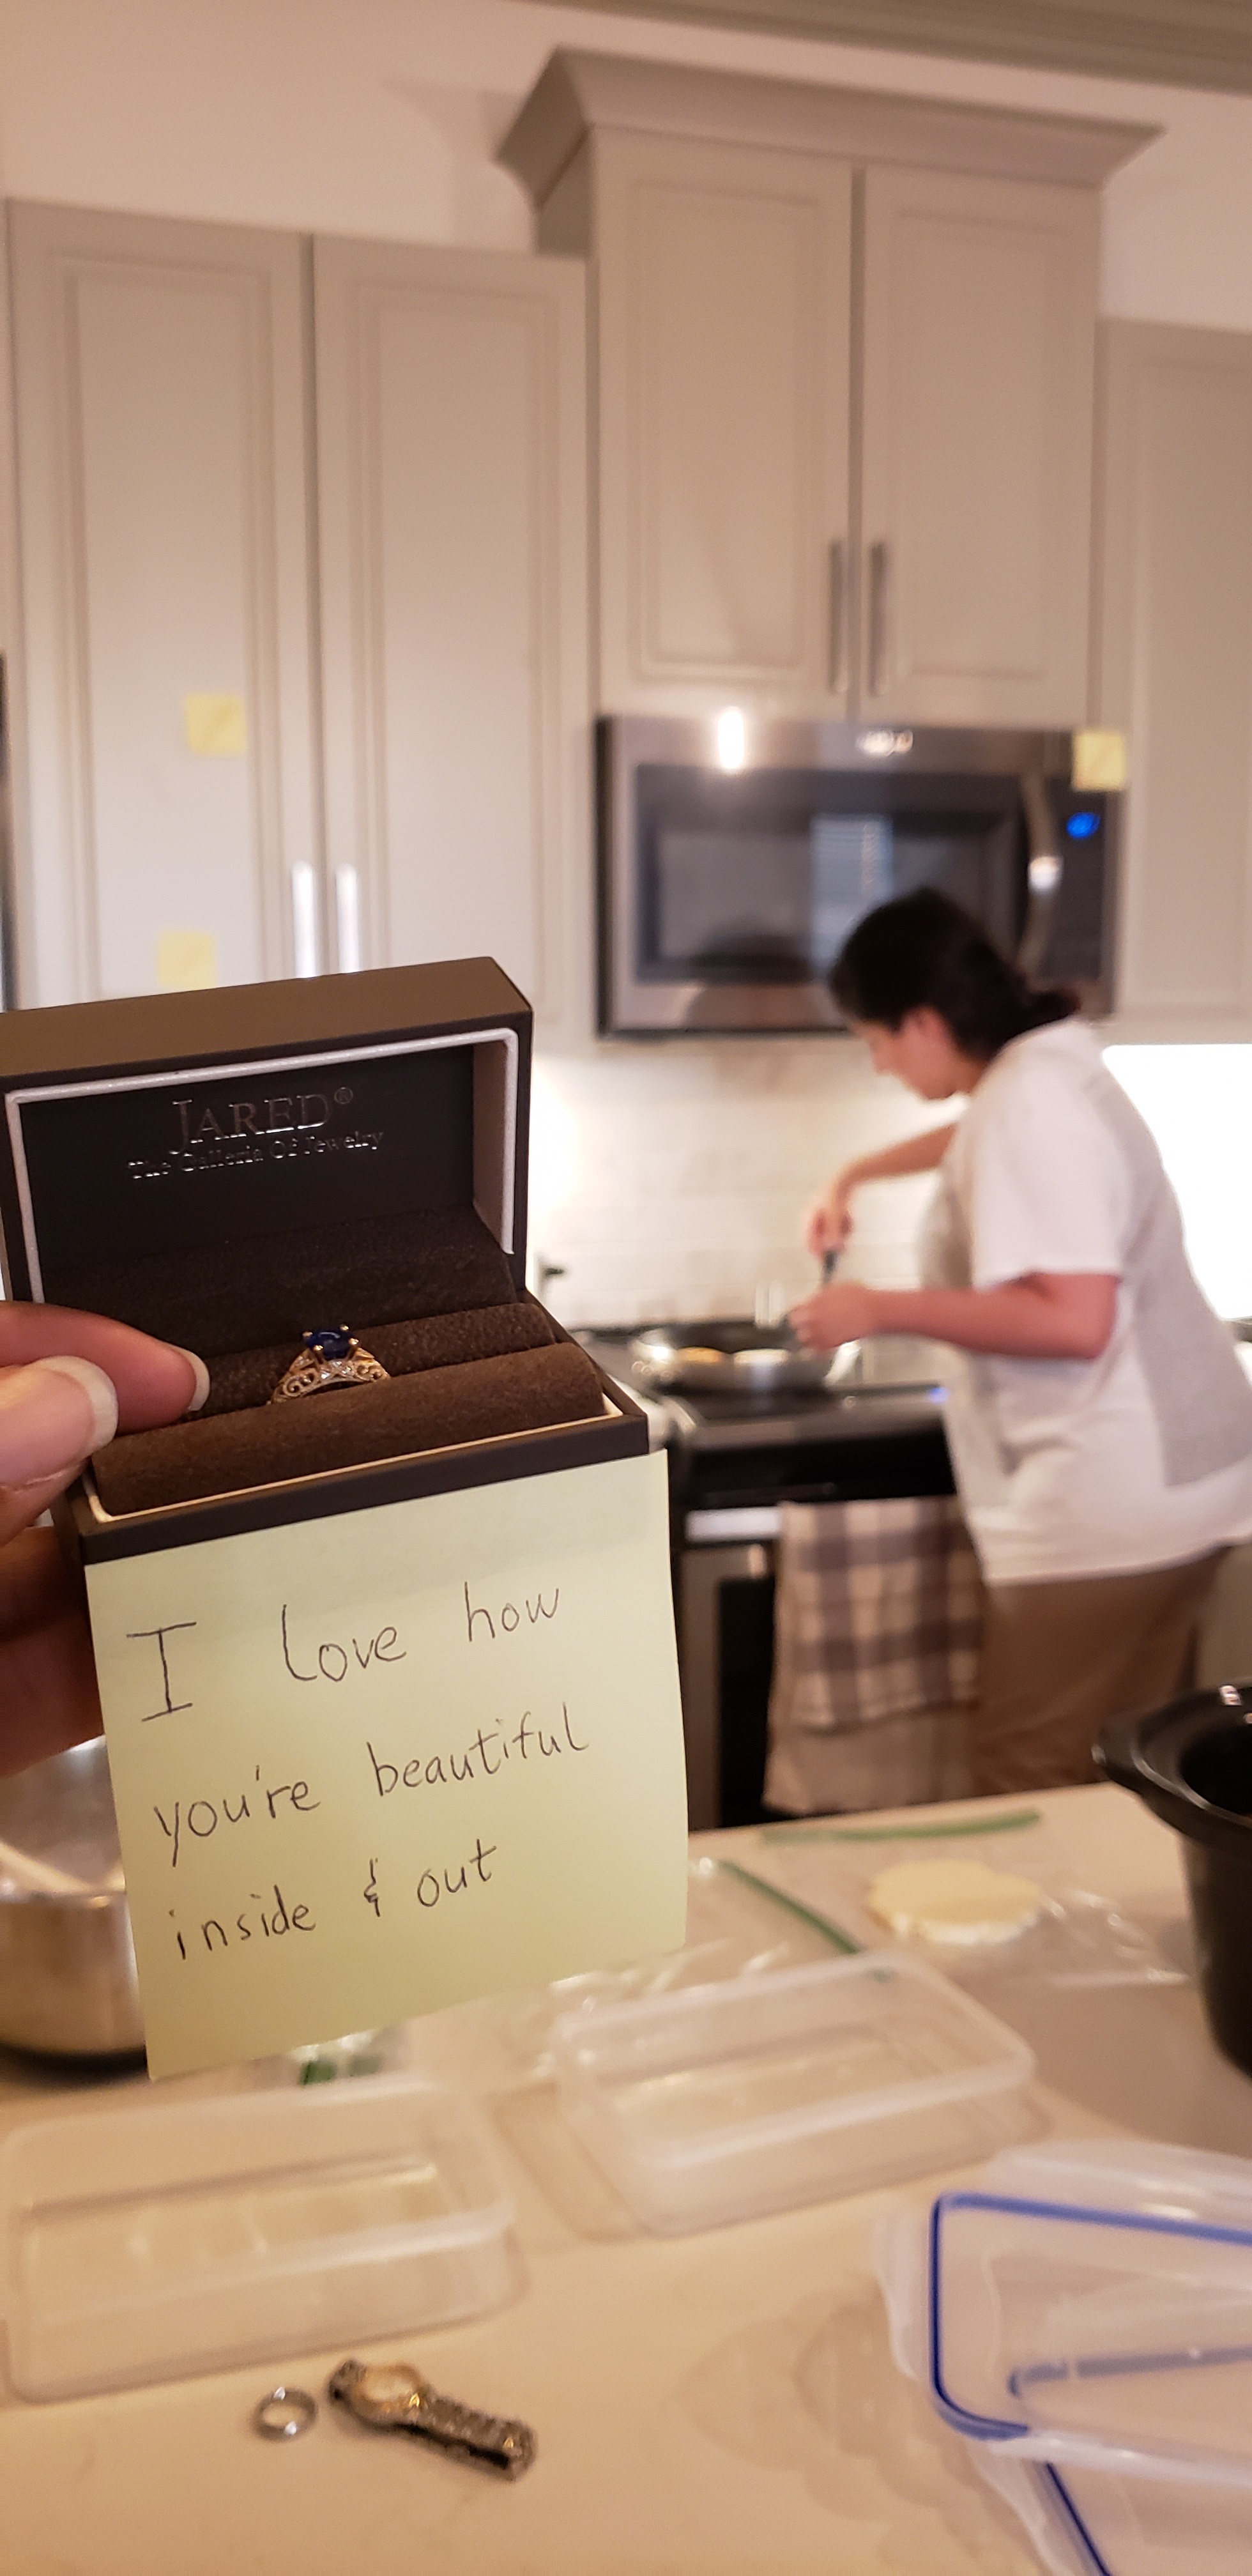 JARED®
The Galleria Of Jewelry
I love how
you're beautiful
inside & out